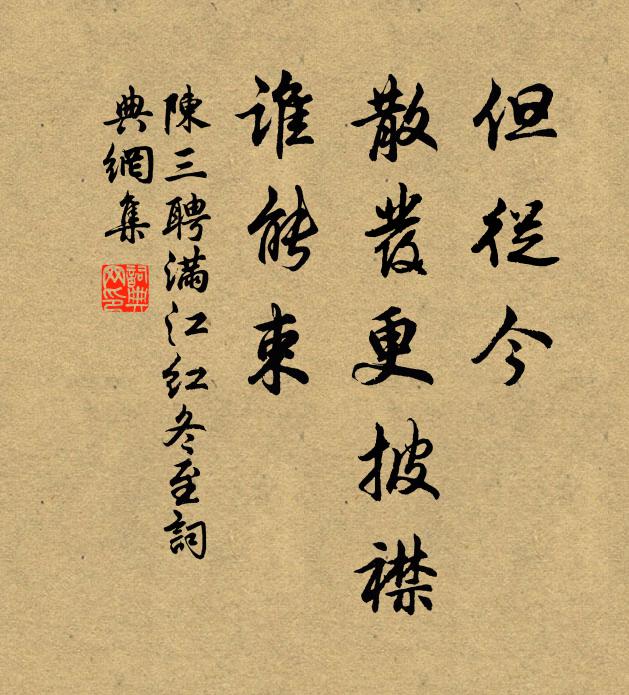 但從今
散發更披襟
誰能束
陳三聘滿江紅冬至詞
典網集
詞典
网印